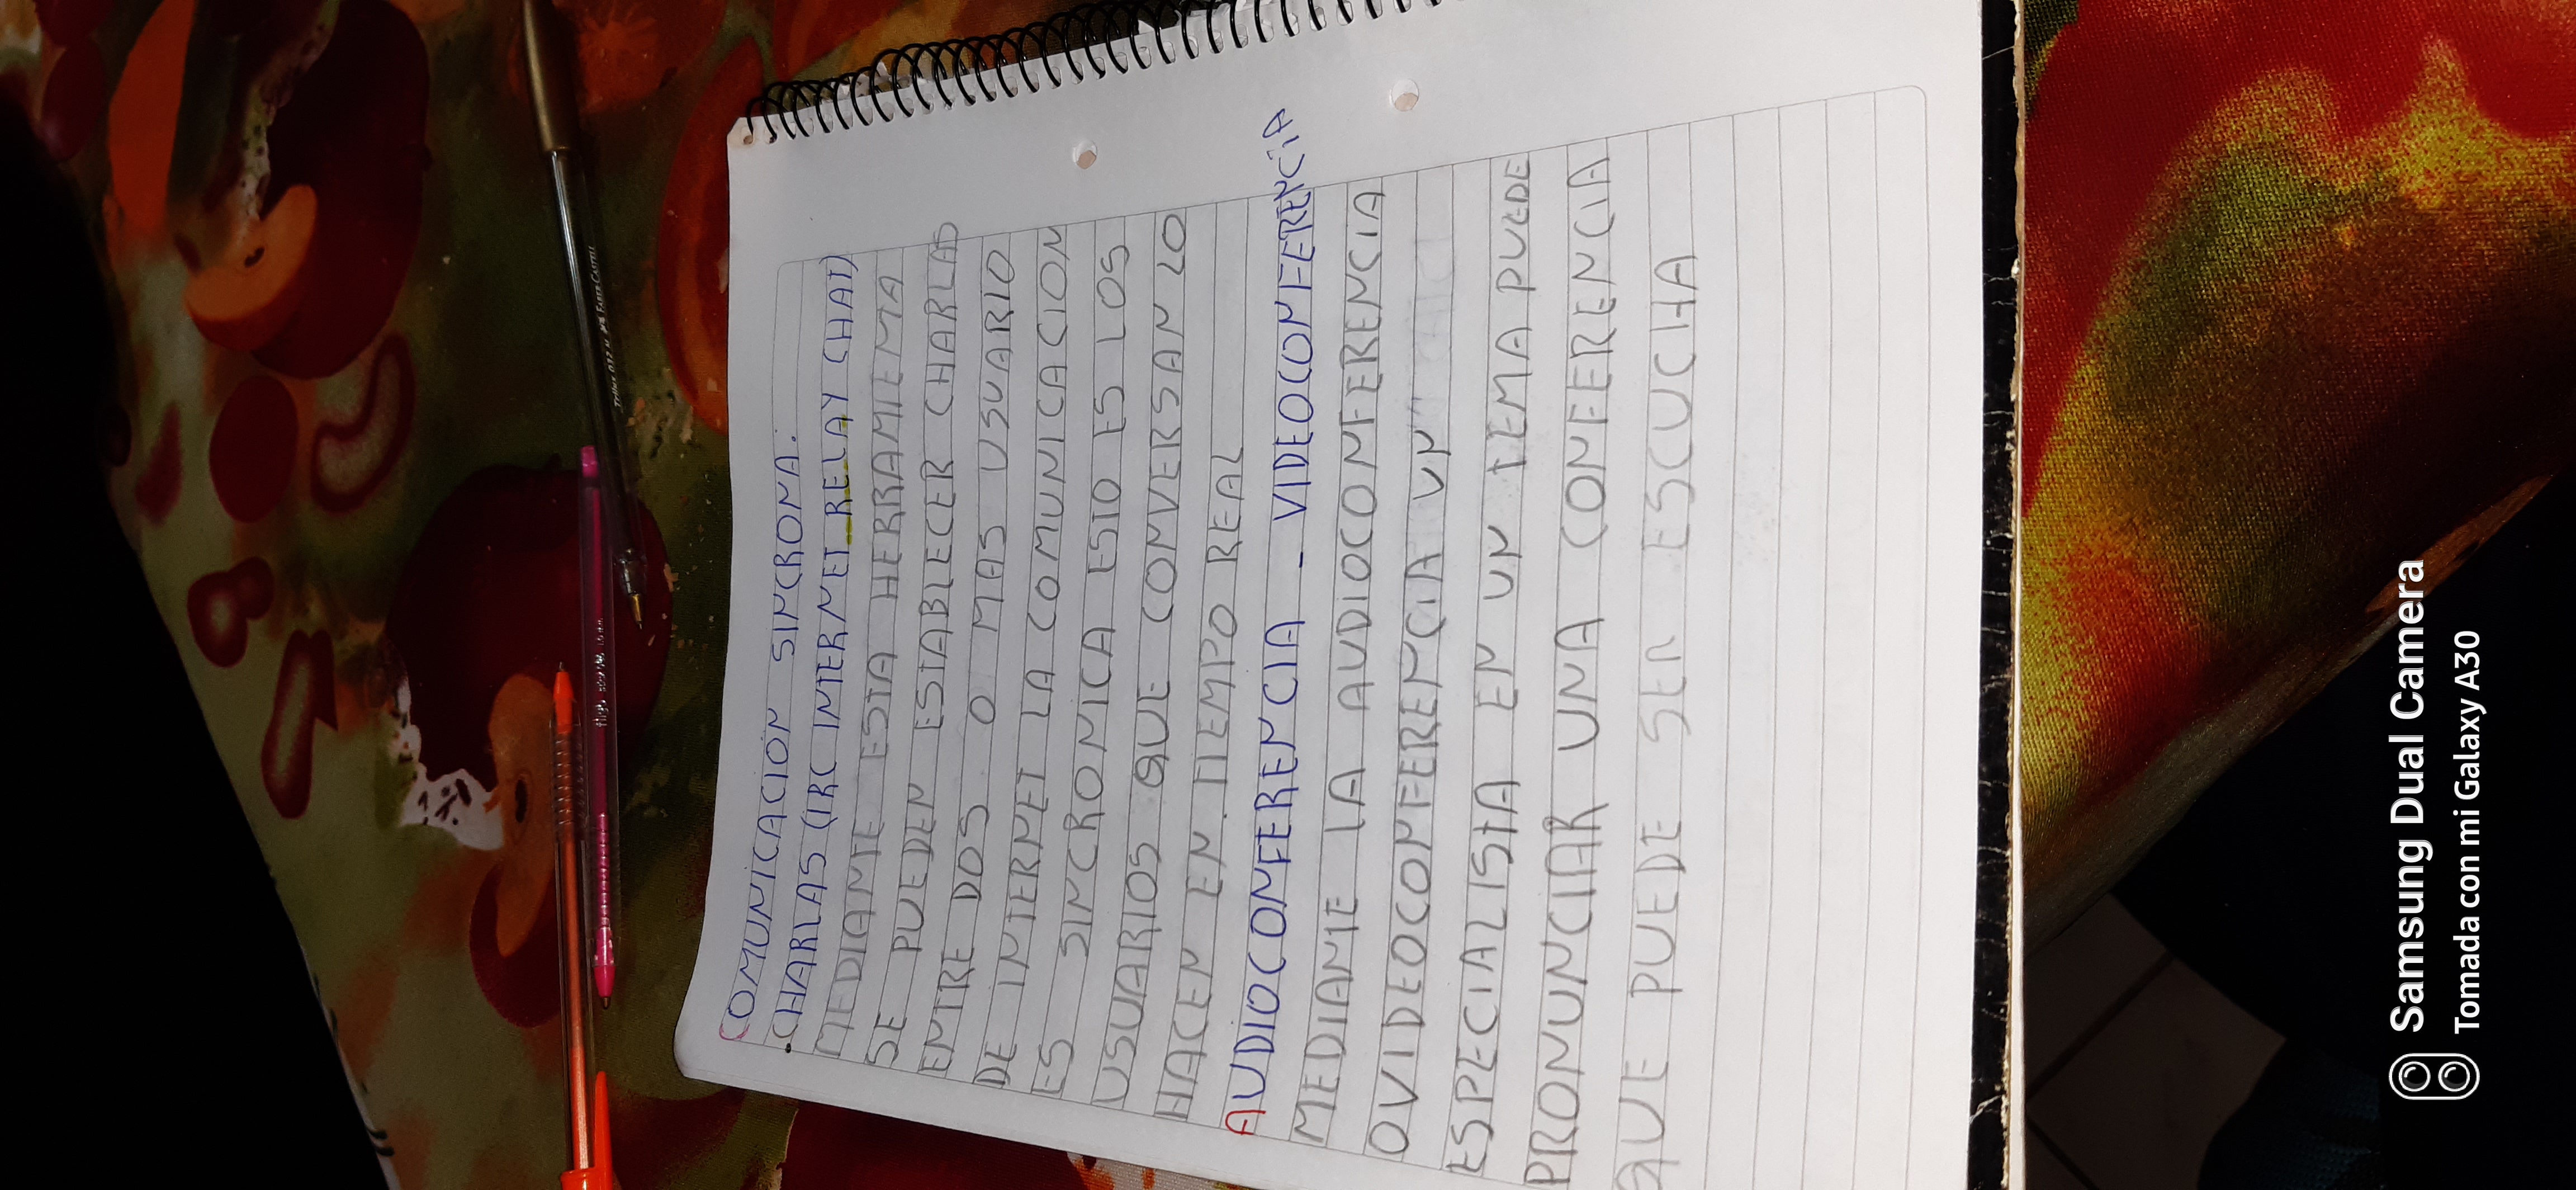 COMUNICACION SINCRONA:
• CHARLAS (IRC INTERNET RELAY CHAT)
MEDIANTE ESTA HERRAMIENTA
SE PUEDEN ESTABLECER CHARLAS
ENTRE DOS O MAS USUARIO
DE INTERNET LA COMUNICACION
ES SINCRONICA ESTO ES LOS
USUARIOS QUE CONVERSAN LO
HACEN EN TIEMPO REAL
AUDIOCONFERENCIA - VIDEOCONFERENCIA
MEDIANTE LA AUDIOCONFERENCIA
O VIDEOCONFERENCIA UN
ESPECIALISTA EN UN TEMA PUEDE
PRONUNCIAR UNA CONFERENCIA
QUE PUEDE SER ESCUCHA
Trilux 032 M FABER-CASTELL
Samsung Dual Camera
Tomada con mi Galaxy A30